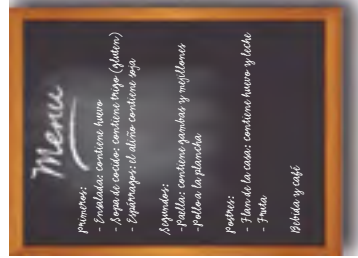 Menu
Primeros:
- Ensalada: contiene huevo
- Sopa de cocido: contiene trigo (gluten)
- Espárragos: el aliño contiene soja
Segundos:
- Paella: contiene gambas y mejillones
- Pollo a la plancha
Postres:
- Flan de la casa: contiene huevo y leche
- Fruta
Bebida y café